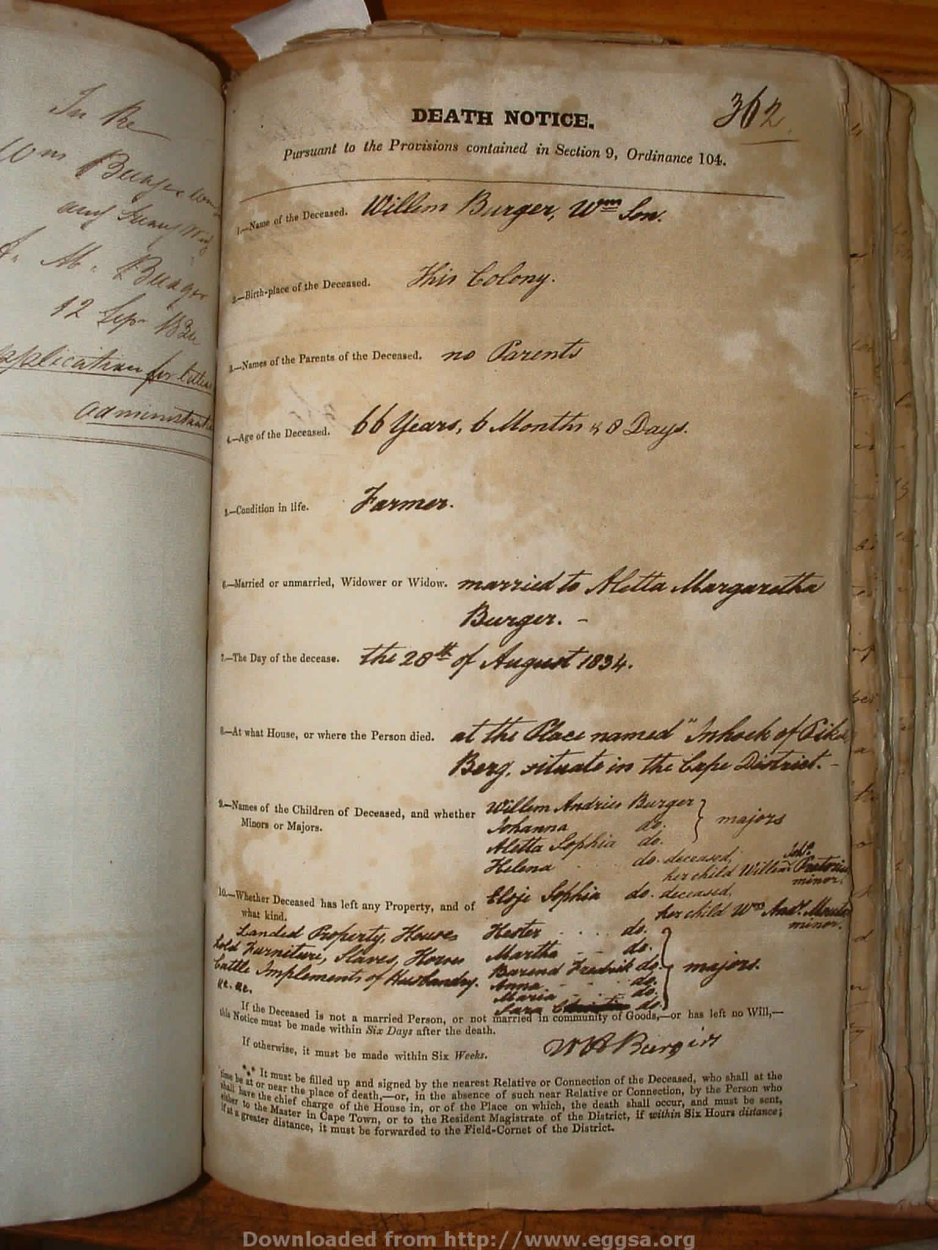 In Re
Wm Burger Wm
and
A. M. Burger
12 Sep 1834
application for letter
administrat
362
DEATH NOTICE.
Pursuant to the Provisions contained in Section 9, Ordinance 104.
1.—Name of the Deceased. Willem Burger, Wm Son.
2.—Birth-place of the Deceased. This Colony.
3.—Names of the Parents of the Deceased. no Parents
4.—Age of the Deceased. 66 Years, 6 Months & 8 Days.
5.—Condition in life. Farmer.
6.—Married or unmarried, Widower or Widow. married to Aletta Margaretha
Burger. –
7.—The Day of the decease. the 28th of August 1834.
8.—At what House, or where the Person died. at the Place named "Inhoek of Piket
Berg, situate in the Cape District. –
9.—Names of the Children of Deceased, and whether
Minors or Majors.
Willem Andries Burger } majors
Johanna do.
Aletta Sophia do.
Helena do. deceased,
her child Willem Johs. Pretorius
minor.
Elsje Sophia do. deceased,
her child Wm Ands.
minor.
Hester do.
Martha do.
Barend Fredrik do. } majors.
Anna do.
Maria do.
Sara do.
10.—Whether Deceased has left any Property, and of
what kind.
Landed Property, House
hold Furniture, Slaves, Horses
Cattle Implements of Husbandry.
&c. &c.
If the Deceased is not a married Person, or not married in community of Goods,—or has left no Will,—
this Notice must be made within Six Days after the death.
If otherwise, it must be made within Six Weeks.
W A Burger
*** It must be filled up and signed by the nearest Relative or Connection of the Deceased, who shall at the
time be at or near the place of death,—or, in the absence of such near Relative or Connection, by the Person who
shall have the chief charge of the House in, or of the Place on which, the death shall occur, and must be sent,
either to the Master in Cape Town, or to the Resident Magistrate of the District, if within Six Hours distance;
if at a greater distance, it must be forwarded to the Field-Cornet of the District.
Downloaded from http://www.eggsa.org